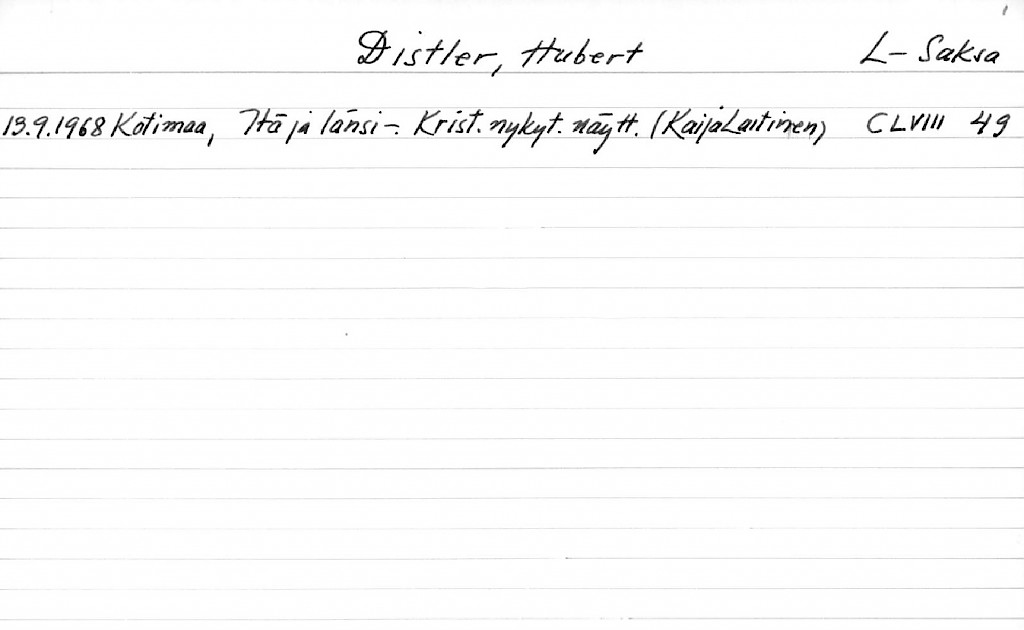 Distler, Hubert L- Saksa
13.9.1968 Kotimaa, Itä ja länsi -. Krist. nykyt. näytt. (Kaija Laitinen) CLVIII 49